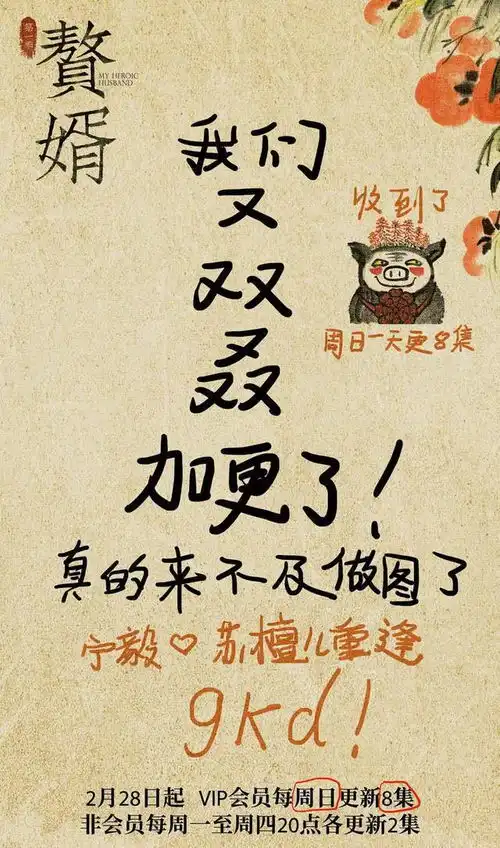 第一季
赘婿
MY HEROIC
HUSBAND
我们
又
双
叒
加更了!
收到了
周日一天更8集
真的来不及做图了
宁毅♡苏檀儿重逢
gkd!
2月28日起 VIP会员每周日更新8集
非会员每周一至周四20点各更新2集